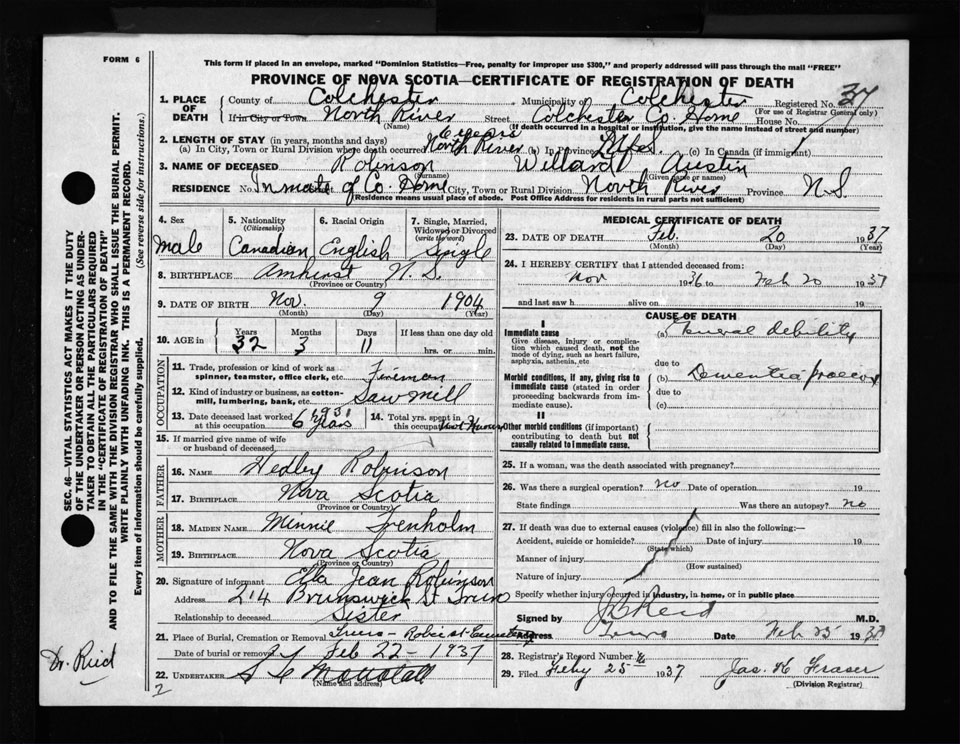 FORM 6
This form if placed in an envelope, marked "Dominion Statistics—Free, penalty for improper use $300," and properly addressed will pass through the mail "FREE"
PROVINCE OF NOVA SCOTIA—CERTIFICATE OF REGISTRATION OF DEATH
SEC. 46—VITAL STATISTICS ACT MAKES IT THE DUTY
OF THE UNDERTAKER OR PERSON ACTING AS UNDER-
TAKER TO OBTAIN ALL THE PARTICULARS REQUIRED
IN THE "CERTIFICATE OF REGISTRATION OF DEATH"
AND TO FILE THE SAME WITH THE DIVISION REGISTRAR WHO SHALL ISSUE THE BURIAL PERMIT.
WRITE PLAINLY WITH UNFADING INK. THIS IS A PERMANENT RECORD.
Every item of information should be carefully supplied. (See reverse side for instructions.)
1. PLACE OF DEATH County of Colchester Municipality of Colchester Registered No. 37
(For use of Registrar General only)
If in City or Town North River Street Colchester Co. Home House No.
(Name) (If death occurred in a hospital or institution, give the name instead of street and number)
2. LENGTH OF STAY (in years, months and days) 6 years
(a) In City, Town or Rural Division where death occurred North River (b) In Province Life (c) In Canada (if immigrant)
3. NAME OF DECEASED Robinson Willard Austin
(Surname) (Given name or names)
RESIDENCE No. Inmate of Co. Home City, Town or Rural Division North River Province N.S.
(Residence means usual place of abode. Post Office Address for residents in rural parts not sufficient)
4. Sex Male
5. Nationality (Citizenship) Canadian
6. Racial Origin English
7. Single, Married, Widowed or Divorced (write the word) Single
8. BIRTHPLACE Amherst N.S.
(Province or Country)
9. DATE OF BIRTH Nov. 9 1904
(Month) (Day) (Year)
10. AGE in Years 32 Months 3 Days 11 If less than one day old hrs. or min.
OCCUPATION
11. Trade, profession or kind of work as spinner, teamster, office clerk, etc. Fireman
12. Kind of industry or business, as cotton-mill, lumbering, bank, etc. Sawmill
13. Date deceased last worked at this occupation 6 years
14. Total yrs. spent in this occupation Not Known
15. If married give name of wife or husband of deceased
FATHER
16. NAME Hedley Robinson
17. BIRTHPLACE Nova Scotia
(Province or Country)
MOTHER
18. MAIDEN NAME Minnie Trenholm
19. BIRTHPLACE Nova Scotia
(Province or Country)
20. Signature of informant Ella Jean Robinson
Address 214 Brunswick St Truro
Relationship to deceased Sister
21. Place of Burial, Cremation or Removal Truro - Cemetery
Date of burial or removal Feb 22 - 1937
22. UNDERTAKER
(Name and address)
Dr. Reid
2
MEDICAL CERTIFICATE OF DEATH
23. DATE OF DEATH Feb. 20 1937
(Month) (Day) (Year)
24. I HEREBY CERTIFY that I attended deceased from:
Nov 1936 to Feb 20 1937
and last saw h alive on 19
CAUSE OF DEATH
I
Immediate cause
Give disease, injury or complication which caused death, not the mode of dying, such as heart failure, asphyxia, asthenia, etc
(a) General debility
due to
Morbid conditions, if any, giving rise to immediate cause (stated in order proceeding backwards from immediate cause).
(b) Dementia praecox
due to
(c)
II
Other morbid conditions (if important) contributing to death but not causally related to immediate cause.
25. If a woman, was the death associated with pregnancy?
26. Was there a surgical operation? no Date of operation 19
State findings Was there an autopsy? no
27. If death was due to external causes (violence) fill in also the following:—
Accident, suicide or homicide? Date of injury 19
(State which)
Manner of injury
(How sustained)
Nature of injury
Specify whether injury occurred in industry, in home, or in public place
Signed by Reid M.D.
Address Truro Date Feb 25 1937
28. Registrar's Record Number
29. Filed Feby 25 1937 Jas. H Fraser
(Division Registrar)